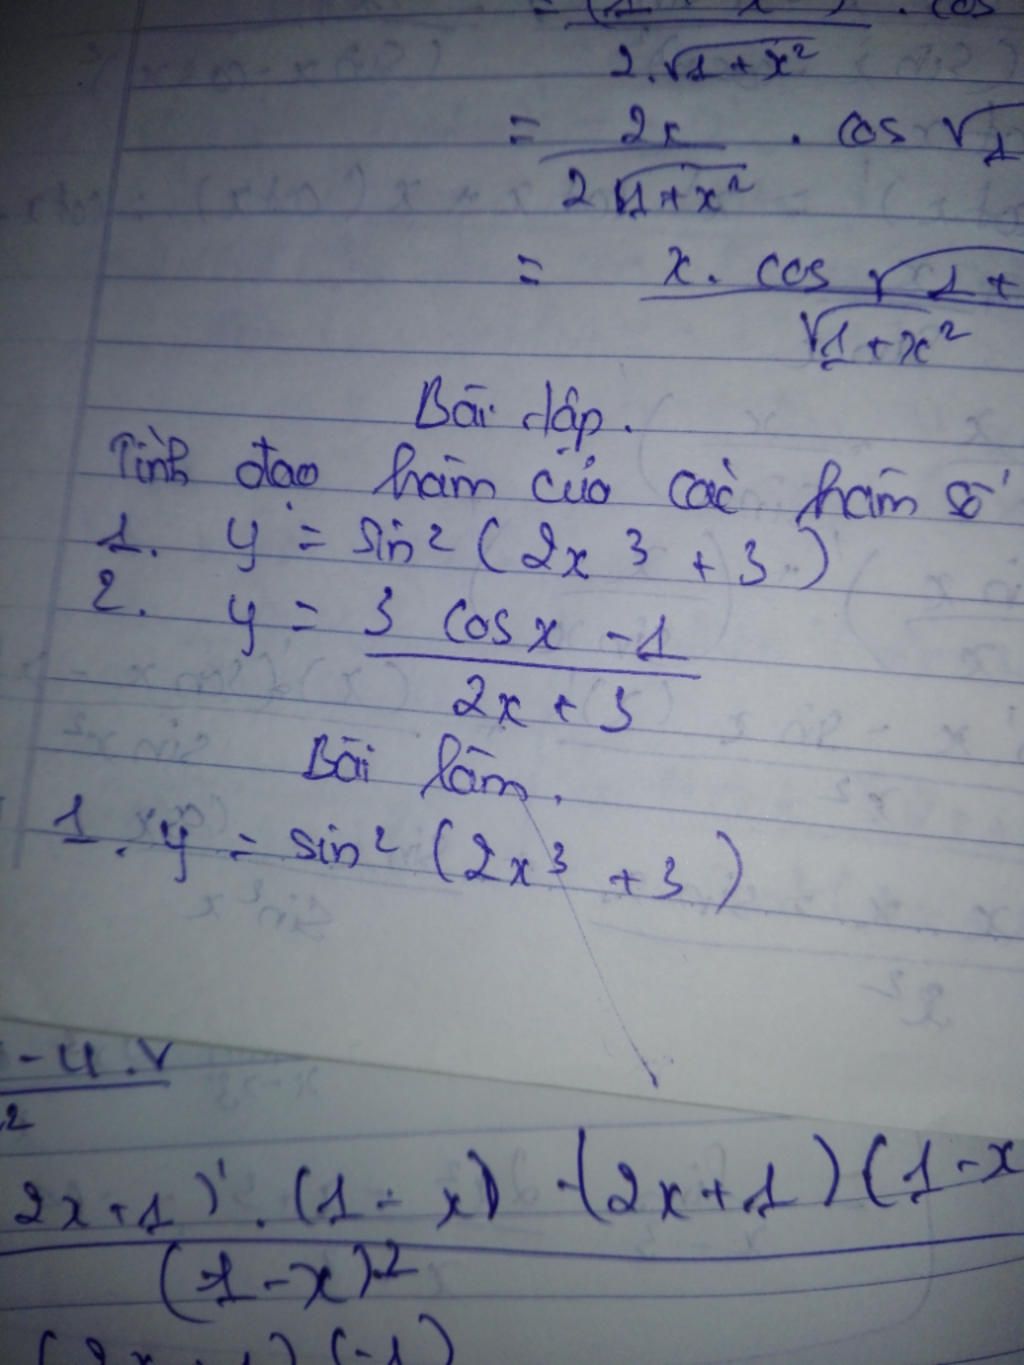 2.√1+x²
= 2x / 2√1+x² . cos √1
= x. cos √1+ / √1+x²
Bài tập.
Tính đạo hàm của các hàm số
1. y = sin² ( 2x³ + 3 )
2. y = 3 cosx - 1 / 2x + 3
Bài làm.
1. y = sin² (2x³ + 3)
- u.v
2
2x+1)'. (1-x) -(2x+1)(1-x
(1-x)²
(-1)